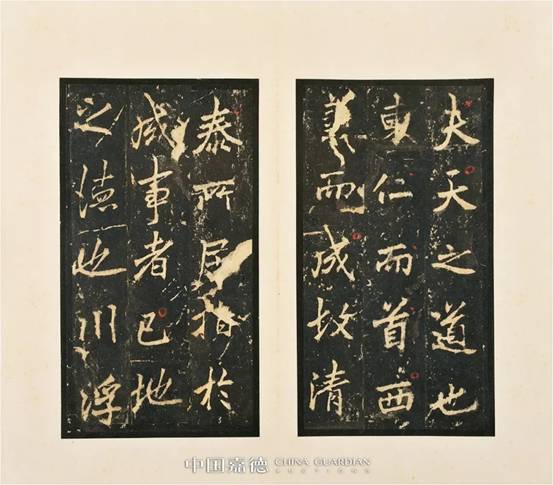 夫天之道也
東仁而首西
義而成故清
泰所居指於
成事者已地
之德也川浮
中国嘉德 CHINA GUARDIAN
AUCTIONS